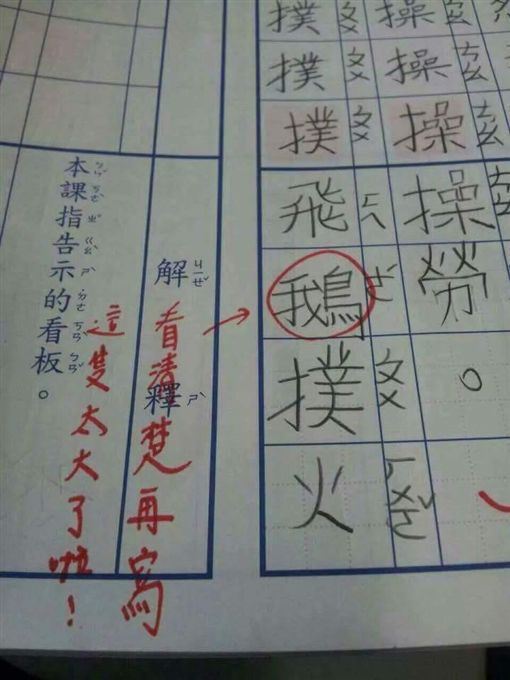 操操操操勞。
ㄘㄠ ㄘㄠ ㄘㄠ
撲撲撲飛鵝撲火
ㄆㄨ ㄆㄨ ㄆㄨ ㄈㄟ ㄜˊ ㄆㄨ ㄏㄨㄛˇ
解釋
ㄐㄧㄝˇ ㄕˋ
看清楚再寫
這隻太大了啦!
本課指告示的看板。
ㄅㄣˇ ㄎㄜˋ ㄓˇ ㄍㄠˋ ㄕˋ ˙ㄉㄜ ㄎㄢˋ ㄅㄢˇ